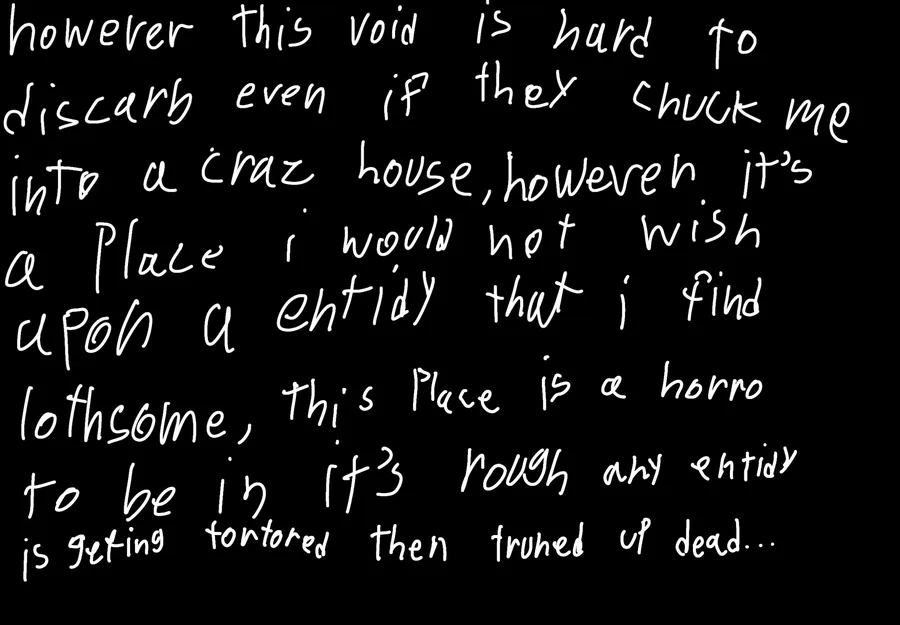 however this void is hard to
discarb even if they chuck me
into a craz house, however it's
a Place i would not wish
upon a entidy that i find
lothsome, this Place is a horro
to be in it's rough any entidy
is geting tortored then truned up dead...